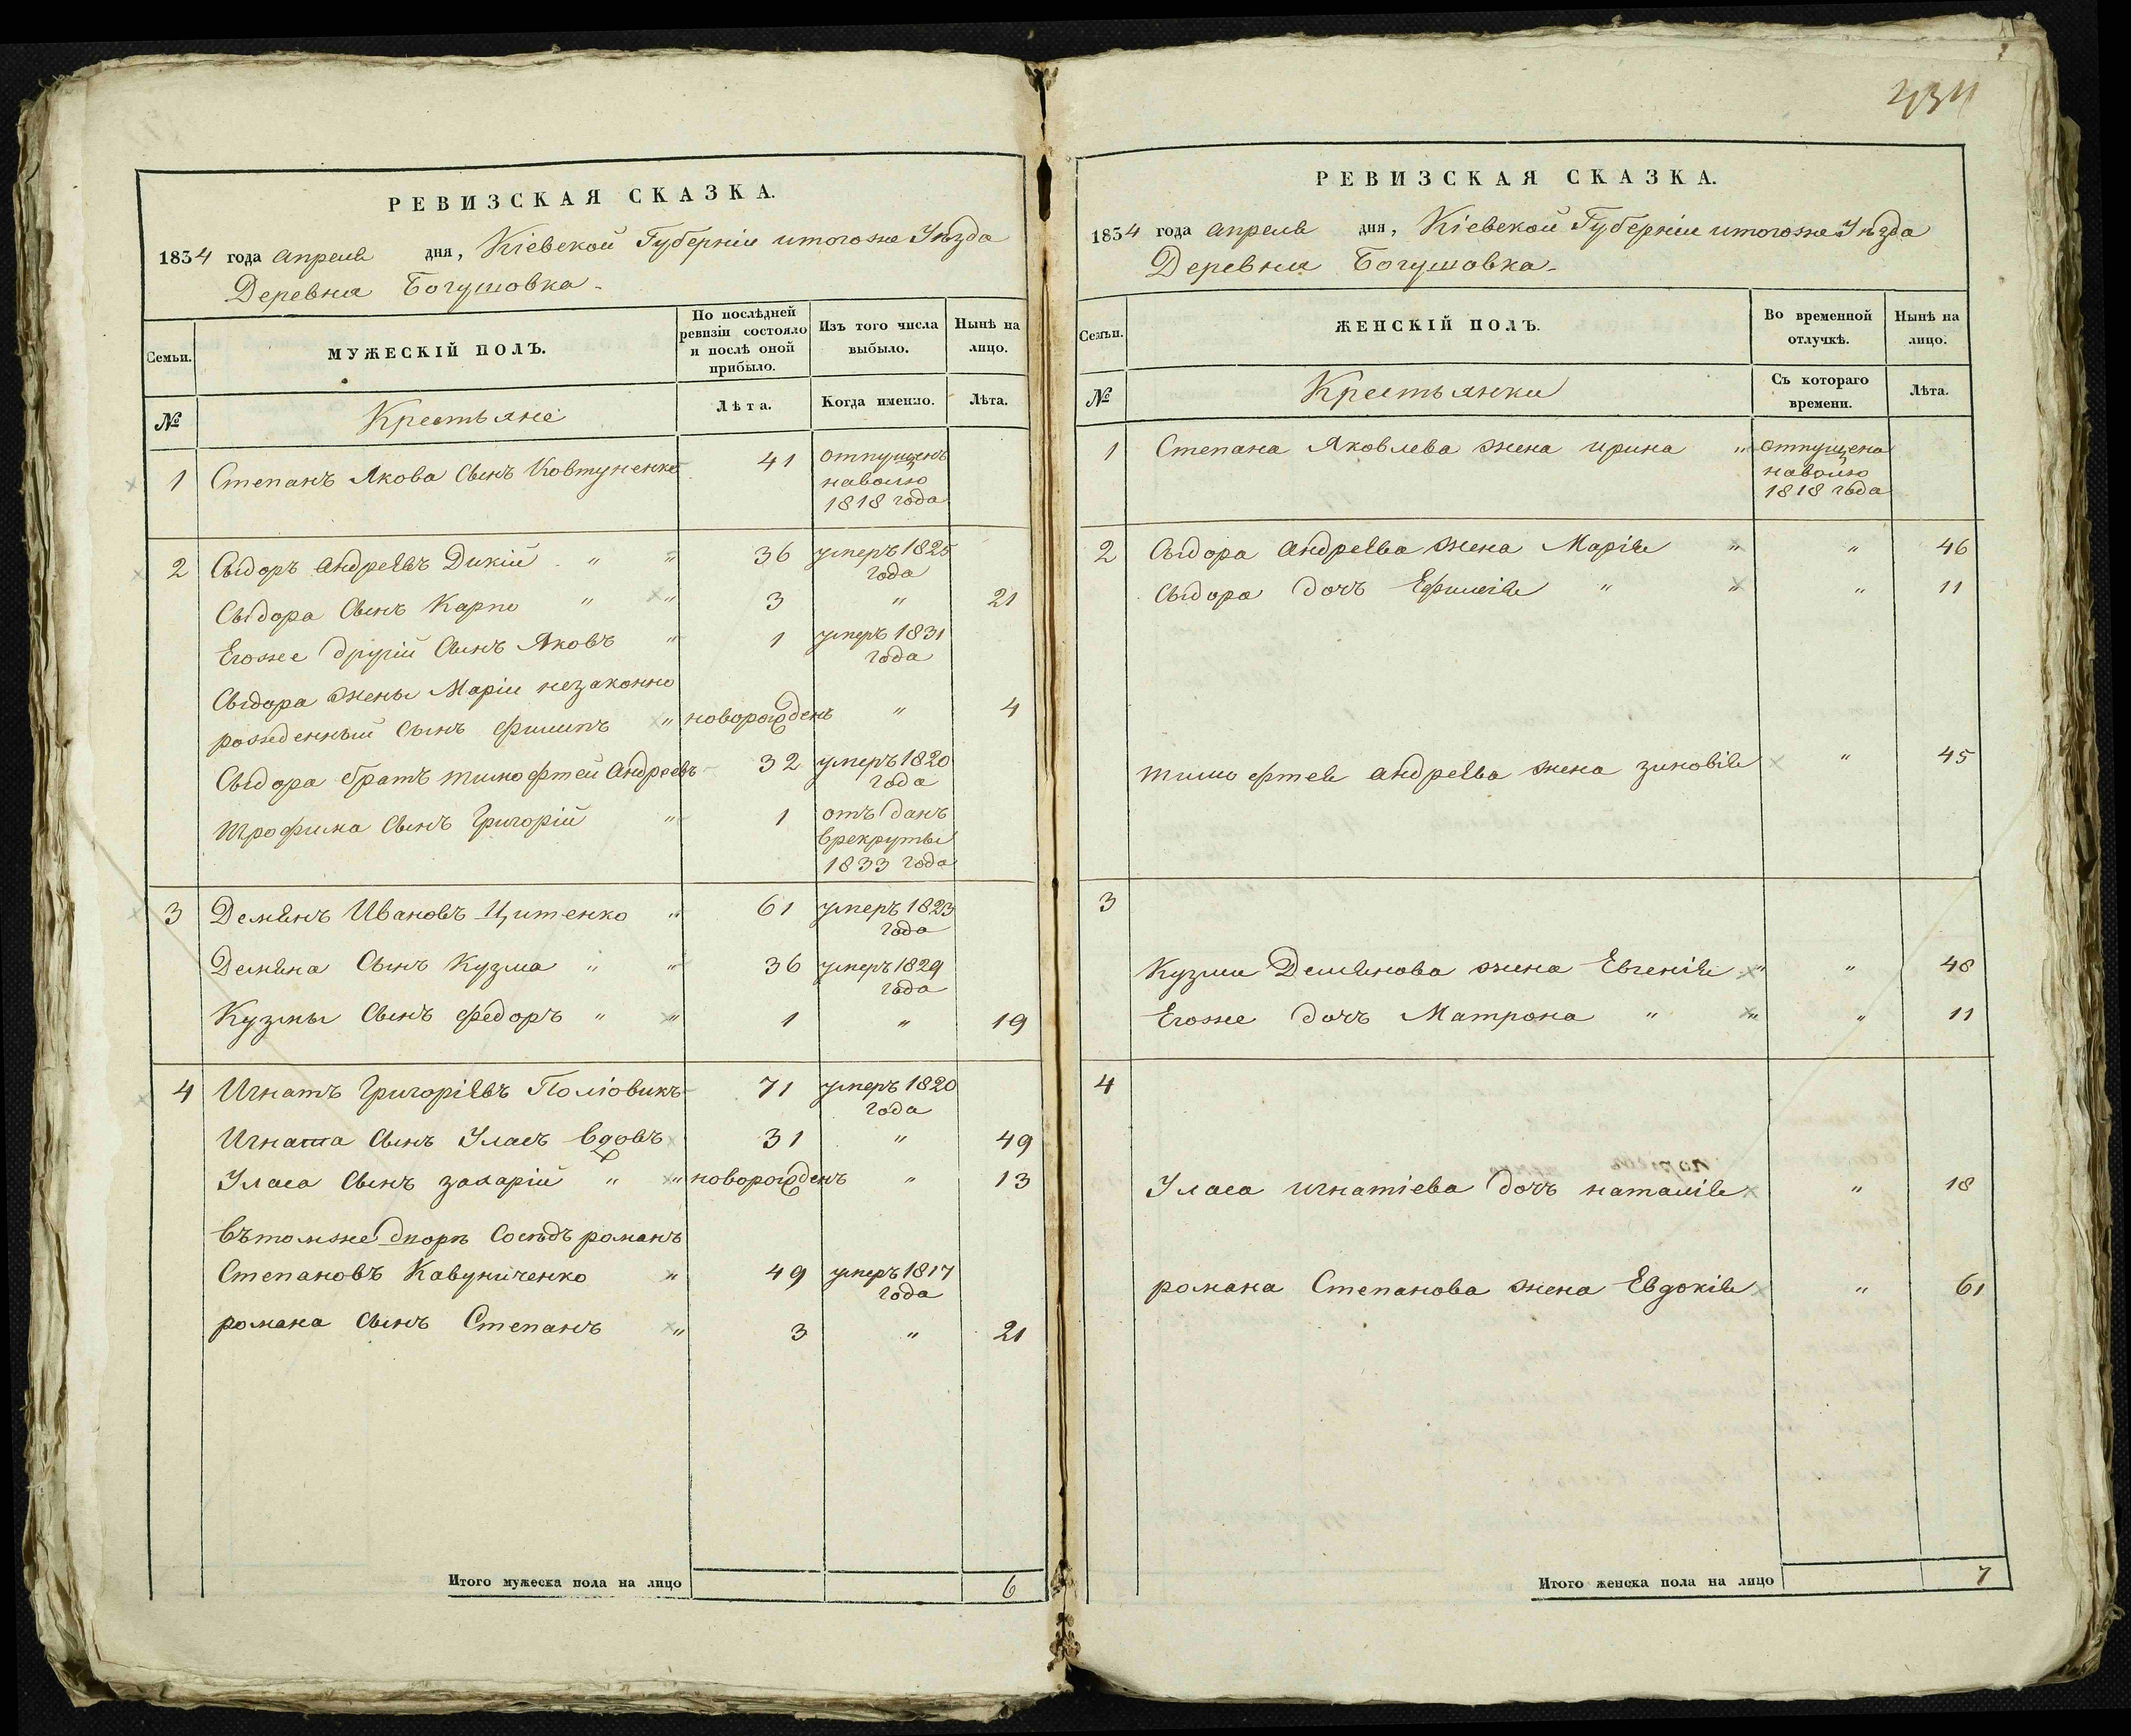 РЕВИЗСКАЯ СКАЗКА.
1834 года апреля дня, Кіевской Губерніи итогоже Уѣзда
Деревня Богушовка.
Семьи. МУЖЕСКІЙ ПОЛЪ. По послѣдней ревизіи состояло и послѣ оной прибыло. Изъ того числа выбыло. Нынѣ на лицо.
№ Крестьяне Лѣта. Когда именно. Лѣта.
1 Степанъ Якова Сынъ Ковтуненко 41 отпущенъ
наволю
1818 года
2 Сыдоръ андреявъ Дикій " " 36 умеръ 1825
года
Сыдора Сынъ Карпо " " 3 " 21
Егоже другій Сынъ Яковъ " 1 умеръ 1831
года
Сыдора жены Маріи незаконно
рожденный Сынъ филипъ " новорожденъ " 4
Сыдора братъ тимофтей Андреевъ 32 умеръ 1820
года
трофима Сынъ Григорій " 1 отъ данъ
врекруты
1833 года
3 Демянъ Ивановъ Цитенко " 61 умеръ 1823
года
Демяна Сынъ Кузма " " 36 умеръ 1829
года
Кузмы Сынъ федоръ " " 1 " 19
4 Игнатъ Григоріявъ Поліовикъ 71 умеръ 1820
года
Игната Сынъ Уласъ вдовъ 31 " 49
Уласа Сынъ захарій " " новорожденъ " 13
вътомже дворѣ Сосѣдъ романъ
Степановъ Кавуниченко " 49 умеръ 1817
года
романа Сынъ Степанъ " 3 " 21
Итого мужеска пола на лицо 6
434
РЕВИЗСКАЯ СКАЗКА.
1834 года апреля дня, Кіевской Губерніи итогоже Уѣзда
Деревня Богушовка.
Семьи. ЖЕНСКІЙ ПОЛЪ. Во временной отлучкѣ. Нынѣ на лицо.
№ Крестьянки Съ котораго времени. Лѣта.
1 Степана Яковлева жена ирина " отпущена
наволю
1818 года
2 Сыдора андреява жена Марія " " 46
Сыдора дочъ Ефимія " " " 11
тимофтея андреява жена зиновія " 45
3
Кузми Демянова жена Евгенія " " 48
Егоже дочъ Матрона " " " 11
4
Уласа игнатіева дочъ наталія " 18
романа Степанова жена Евдокія " 61
Итого женска пола на лицо 7